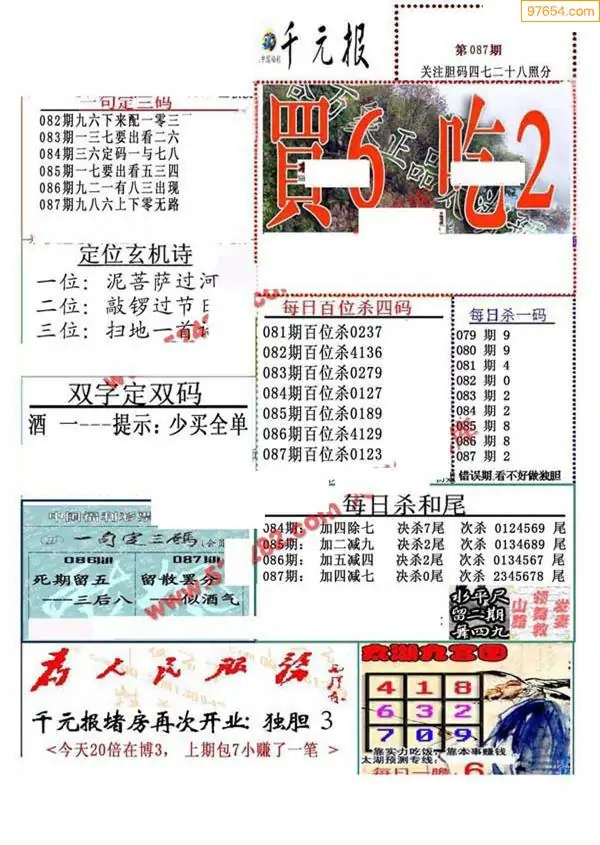 97654.com
千元报
第087期
关注胆码四七二十八照分
一句定三码
082期九六下来配一零三
083期一三七要出看二六
084期三六定码一与七八
085期一七要出看五三四
086期九二一有八三出现
087期九八六上下零无路
買6吃2
定位玄机诗
一位：泥菩萨过河
二位：敲锣过节日
三位：扫地一首
双字定双码
酒 一---提示：少买全单
每日百位杀四码
081期百位杀0237
082期百位杀4136
083期百位杀0279
084期百位杀0127
085期百位杀0189
086期百位杀4129
087期百位杀0123
每日杀一码
079 期 9
080 期 9
081 期 4
082 期 0
083 期 2
084 期 2
085 期 8
086 期 8
087 期 2
错误期,看不好做独胆
每日杀和尾
084期： 加四除七 决杀7尾 次杀 0124569 尾
085期： 加二减九 决杀2尾 次杀 0134689 尾
086期： 加五减四 决杀2尾 次杀 0134567 尾
087期： 加四减七 决杀0尾 次杀 2345678 尾
一句定三碼
086期
死期留五
---三后八
087期
留散罢分
---似酒气
水平尺
留二期
舞四九
山路
领舞教
发妻
为人民服务
千元报堵房再次开业: 独胆 3
<今天20倍在博3， 上期包7小赚了一笔 >
太湖九宫图
4 1 8
6 3 2
7 0 9
靠实力吃饭，靠本事赚钱
太湖预测专线:
每日一胆
6